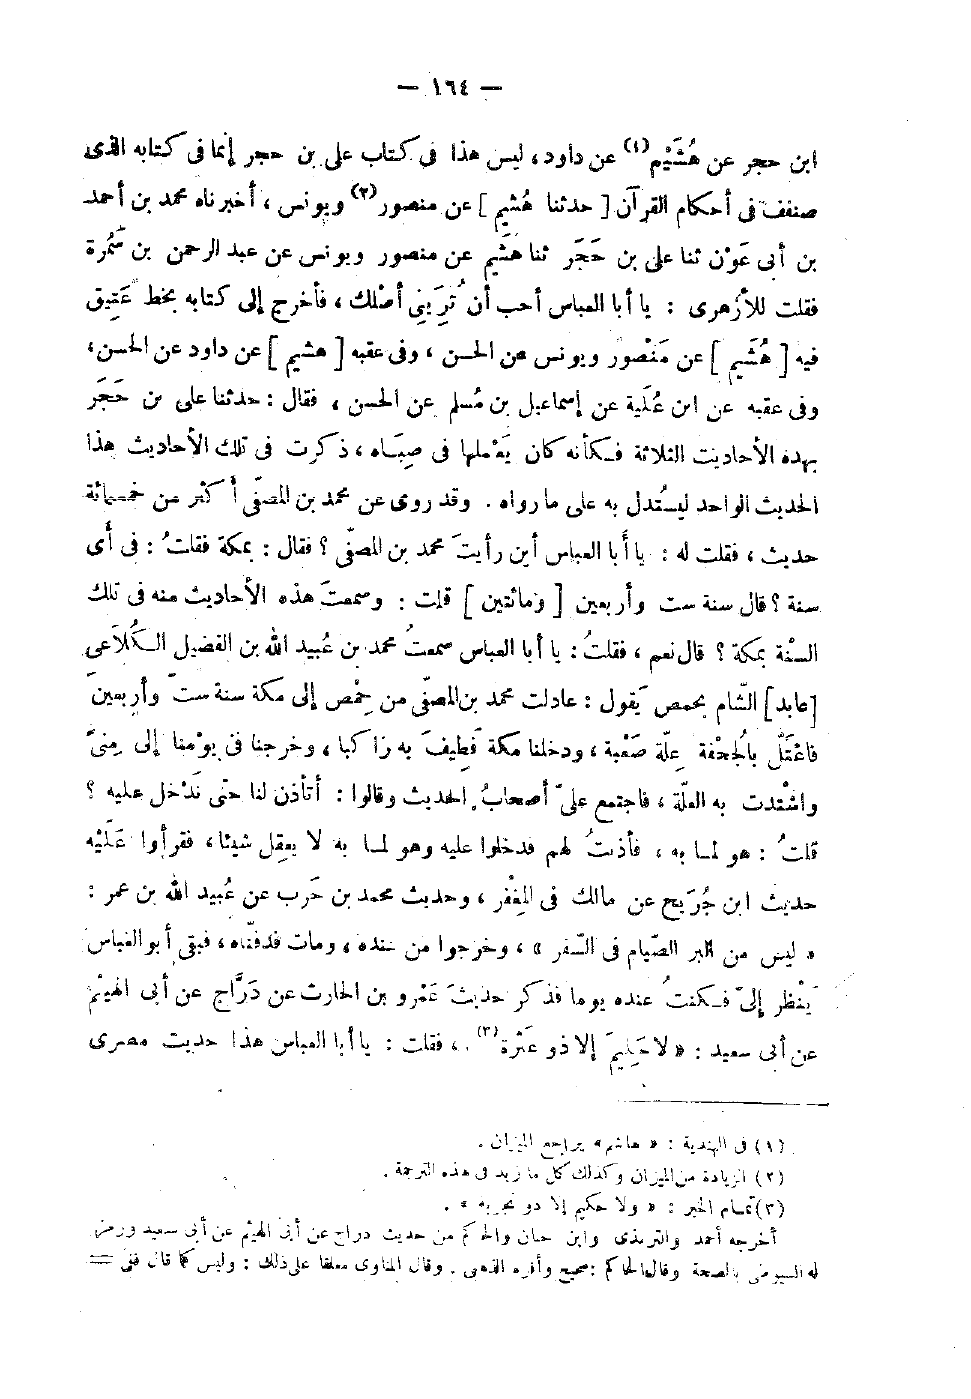 — ١٦٤ —
ابن حجر عن هُشَيْم(١) عن داود، ليس هذا فى كتاب على بن حجر إنما فى كتابه الذى
صنفف فى أحكام القرآن [ حدثنا هُشيم ] عن منصور(٢) ويونس ، أخبرناه محمد بن أحمد
بن أبى عَوْن ثنا على بن حَجَر ثنا هشيم عن منصور ويونس عن عبد الرحمن بن سَمُرة
فقلت للأزهرى : يا أبا العباس أحب أن تُرَينِى أصْلك ، فأخرج إلى كتابه بخط عَتِيق
فيه [ هُشَيم ] عن مَنْصُور ويونس عن الحسن ، وفى عقبه [ هشيم ] عن داود عن الحسن،
وفى عقبه عن ابن عُلَية عن إسماعيل بن مُسلم عن الحسن ، فقال : حدثنا على بن حَجَر
بهذه الأحاديث الثلاثة فكأنه كان يَعْملها فى صِبَاه ، ذكرت فى تلك الأحاديث هذا
الحديث الواحد ليستُدل به على ما رواه . وقد روى عن محمد بن المصفّى أكثر من خمسمائة
حديث ، فقلت له : يا أَبا العباس أين رأيتَ محمد بن المصفّى ؟ فقال : بمكة فقلتُ : فى أَى
سنة ؟ قال سنة ست وأربعين [ ومائتين ] قلت : وسمعتَ هذه الأحاديث منه فى تلك
السنْة بمكة ؟ قال نعم ، فقلتُ : يا أبا العباس سمعتُ محمد بن عُبيد الله بن الفضيل الكُلاَعى
[عابد] الشّام بحمص يَقول : عادلت محمد بن المصفّى من حِمْص إلى مكة سنة ست وأربعين
فاعْتَلَّ بالجُحْفة عِلّة صَعْبة ، ودخلنا مكة فَطِيفَ به راكبا ، وخرجنا فى يوْمنا إلى مِنىً
واشْتدت به العلّة ، فاجتمع علىّ أصحابُ الحديث وقالوا : أتأذن لنا حتى نَدْخل عليه ؟
قلتُ : هو لما به ، فأذنتُ لهم فدخلوا عليه وهو لما به لا يعقِل شيئا، فقرأوا عَلَيْه
حديث ابن جُرَيج عن مالك فى المِغْفر ، وحديث محمد بن حَرب عن عُبيد الله بن عمر :
« ليس من البر الصّيام فى السّفر » ، وخرجوا من عنده ، ومات فدفنّاه ، فبقى أبو العباس
يَنْظر إلىّ فكنتُ عنده يوما فذكر حديثَ عَمْرو بن الحارث عن دَرَّاج عن أبى الهيثم
عن أبى سعيد : « لا حَلِيمَ إلا ذو عَثْرة(٣) ، فقلت : يا أبا العباس هذا حديث مصرى
(١) فى الهندية : « هاشم » يراجع الميزان .
(٢) الزيادة من الميزان وكذلك كل ما زيد فى هذه الترجمة .
(٣) تمام الخبر : « ولا حكيم إلا ذو تجربة » .
أخرجه أحمد والترمذى وابن حبان والحاكم من حديث دراج عن أبى الهيثم عن أبى سعيد ورمز
له السيوطى بالصحة وقال الحاكم : صحيح وأقره الذهبى . وقال المناوى معلقا على ذلك : وليس كما قال ففى =